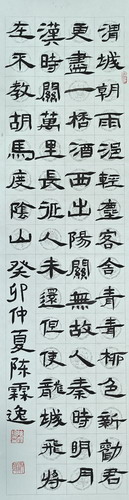 渭城朝雨浥輕塵客舍青青柳色新勸君
更盡一桮酒西出陽關無故人秦時明月
漢時關萬里長征人未還但使龍城飛將
在不教胡馬度陰山癸卯仲夏陳霖逸